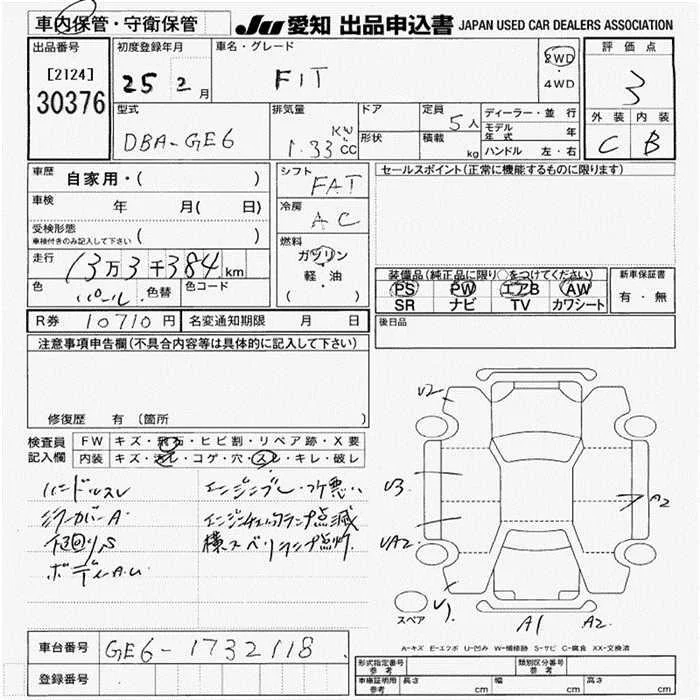 車内保管・守衛保管
JU 愛知 出品申込書 JAPAN USED CAR DEALERS ASSOCIATION
出品番号
[2124]
30376
初度登録年月
25 2月
車名・グレード
FIT
2WD
・
4WD
評価点
3
外装 内装
C B
型式
DBA-GE6
排気量
KW
1.33 CC
ドア
形状
定員
5人
積載
kg
ディーラー・並行
モデル年式 年
ハンドル 左・右
車歴
自家用・( )
車検
年 月( 日)
受検形態
車検付きのみ記入して下さい ( )
走行
13万3千384km
色
パール
色替
色コード
シフト
FAT
冷房
AC
燃料
ガソリン
・
軽・油
( )
セールスポイント(正常に機能するものに限ります)
装備品(純正品に限り○をつけてください)
PS PW エアB AW
SR ナビ TV カワシート
新車保証書
有・無
R券 10710円
名変通知期限 月 日
後日品
注意事項申告欄(不具合内容等は具体的に記入して下さい)
修復歴 有(箇所 )
検査員記入欄
FW キズ・飛石・ヒビ割・リペア跡・X要
内装 キズ・汚レ・コゲ・穴・スレ・キレ・破レ
ハンドルスレ
ミラーカバーA
下回りS
ボディーA.U
エンジンブレ・フケ悪い
エンジンチェックランプ点滅
横スベリランプ点灯
U2
U3
UA2
A2
U1
A1
A2
スペア
A-キズ E-エクボ U-凹み W-補修跡 S-サビ C-腐食 XX-交換済
車台番号 GE6-1732118
登録番号
形式指定番号 参考
類別区分番号 参考
車検証明用 参考
長さ cm 幅 cm 高さ cm